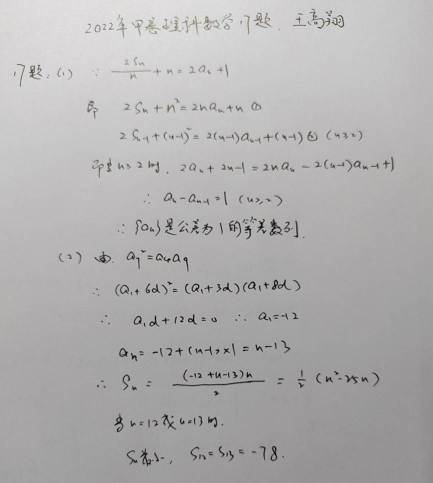 2022年甲卷理科数学17题. 王高翔
17题:(1) ∵ 2Sn/n + n = 2an+1
即 2Sn+n²=2nan+n ①
2Sn-1+(n-1)²=2(n-1)an-1+(n-1) ② (n≥2)
即当n≥2时, 2an+2n-1=2nan-2(n-1)an-1+1
∴ an-an-1=1 (n≥2)
∴ {an}是公差为1的等差数列.
(2) 由 a7²=a4a9
∴ (a1+6d)²=(a1+3d)(a1+8d)
∴ a1d+12d=0 ∴ a1=-12
an=-12+(n-1)×1=n-13
∴ Sn = (-12+n-13)n/2 = 1/2(n²-25n)
当n=12或n=13时.
Sn最小, S12=S13=-78.